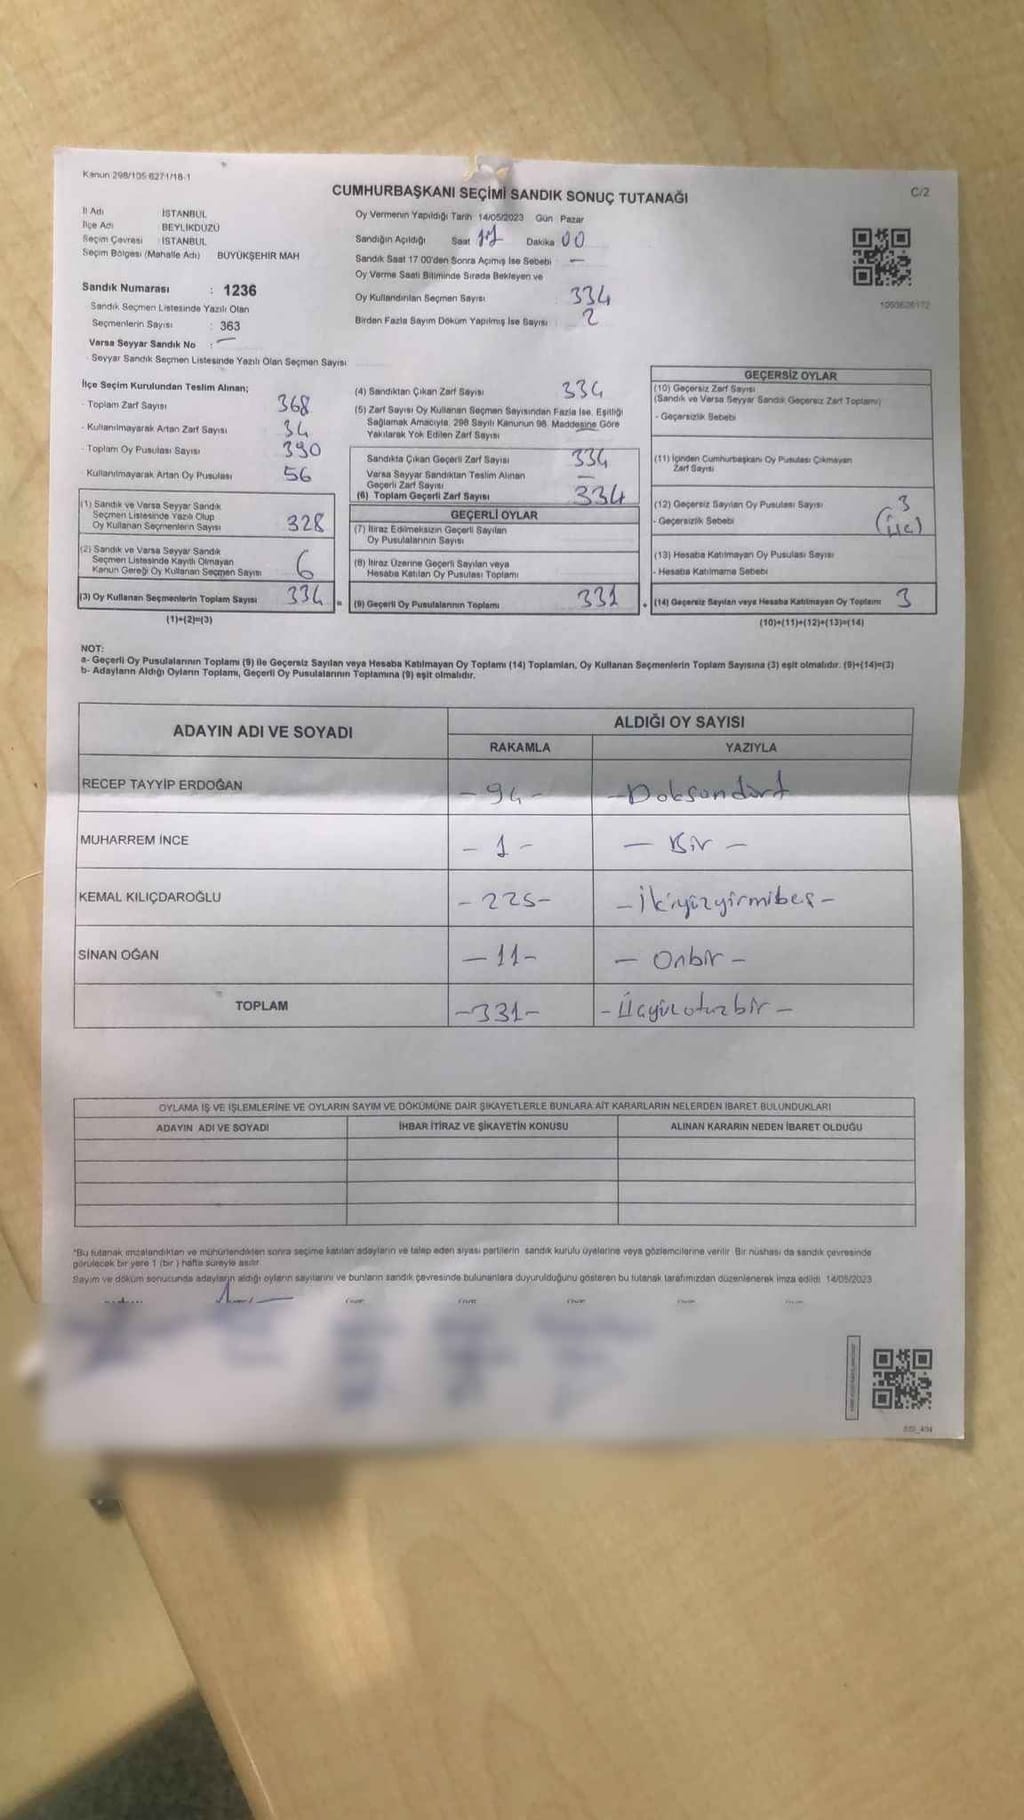 Kanun 298/105 6271/18-1
CUMHURBAŞKANI SEÇİMİ SANDIK SONUÇ TUTANAĞI
C/2
İl Adı İSTANBUL
İlçe Adı BEYLİKDÜZÜ
Seçim Çevresi : İSTANBUL
Seçim Bölgesi (Mahalle Adı) BÜYÜKŞEHİR MAH
Sandık Numarası : 1236
Sandık Seçmen Listesinde Yazılı Olan
Seçmenlerin Sayısı : 363
Varsa Seyyar Sandık No : -
- Seyyar Sandık Seçmen Listesinde Yazılı Olan Seçmen Sayısı
Oy Vermenin Yapıldığı Tarih 14/05/2023 Gün Pazar
Sandığın Açıldığı Saat 17 Dakika 00
Sandık Saat 17 00'den Sonra Açımış İse Sebebi -
Oy Verme Saati Bitiminde Sırada Bekleyen ve
Oy Kullandırılan Seçmen Sayısı : 334
Birden Fazla Sayım Döküm Yapılmış İse Sayısı : 2
1093626172
İlçe Seçim Kurulundan Teslim Alınan;
- Toplam Zarf Sayısı 368
- Kullanılmayarak Artan Zarf Sayısı 34
- Toplam Oy Pusulası Sayısı 390
- Kullanılmayarak Artan Oy Pusulası 56
(1) Sandık ve Varsa Seyyar Sandık
Seçmen Listesinde Yazılı Olup
Oy Kullanan Seçmenlerin Sayısı 328
(2) Sandık ve Varsa Seyyar Sandık
Seçmen Listesinde Kayıtlı Olmayan
Kanun Gereği Oy Kullanan Seçmen Sayısı 6
(3) Oy Kullanan Seçmenlerin Toplam Sayısı 334 =
(1)+(2)=(3)
(4) Sandıktan Çıkan Zarf Sayısı 334
(5) Zarf Sayısı Oy Kullanan Seçmen Sayısından Fazla İse, Eşitliği
Sağlamak Amacıyla, 298 Sayılı Kanunun 98. Maddesine Göre
Yakılarak Yok Edilen Zarf Sayısı
Sandıkta Çıkan Geçerli Zarf Sayısı 334
Varsa Seyyar Sandıktan Teslim Alınan
Geçerli Zarf Sayısı -
(6) Toplam Geçerli Zarf Sayısı 334
GEÇERLİ OYLAR
(7) İtiraz Edilmeksizin Geçerli Sayılan
Oy Pusulalarının Sayısı
(8) İtiraz Üzerine Geçerli Sayılan veya
Hesaba Katılan Oy Pusulası Toplamı
(9) Geçerli Oy Pusulalarının Toplamı 331 +
GEÇERSİZ OYLAR
(10) Geçersiz Zarf Sayısı
(Sandık ve Varsa Seyyar Sandık Geçersiz Zarf Toplamı)
- Geçersizlik Sebebi
(11) İçinden Cumhurbaşkanı Oy Pusulası Çıkmayan
Zarf Sayısı
(12) Geçersiz Sayılan Oy Pusulası Sayısı 3
- Geçersizlik Sebebi (Üç)
(13) Hesaba Katılmayan Oy Pusulası Sayısı
- Hesaba Katılmama Sebebi
(14) Geçersiz Sayılan veya Hesaba Katılmayan Oy Toplamı 3
(10)+(11)+(12)+(13)=(14)
NOT:
a- Geçerli Oy Pusulalarının Toplamı (9) ile Geçersiz Sayılan veya Hesaba Katılmayan Oy Toplamı (14) Toplamları, Oy Kullanan Seçmenlerin Toplam Sayısına (3) eşit olmalıdır. (9)+(14)=(3)
b- Adayların Aldığı Oyların Toplamı, Geçerli Oy Pusulalarının Toplamına (9) eşit olmalıdır.
ADAYIN ADI VE SOYADI
ALDIĞI OY SAYISI
RAKAMLA YAZIYLA
RECEP TAYYİP ERDOĞAN -94- -Doksandört
MUHARREM İNCE -1- - Bir -
KEMAL KILIÇDAROĞLU -225- -İkiyüzyirmibeş-
SİNAN OĞAN -11- - Onbir -
TOPLAM -331- -Üçyüzotuzbir-
OYLAMA İŞ VE İŞLEMLERİNE VE OYLARIN SAYIM VE DÖKÜMÜNE DAİR ŞİKAYETLERLE BUNLARA AİT KARARLARIN NELERDEN İBARET BULUNDUKLARI
ADAYIN ADI VE SOYADI İHBAR İTİRAZ VE ŞİKAYETİN KONUSU ALINAN KARARIN NEDEN İBARET OLDUĞU
*Bu tutanak imzalandıktan ve mühürlendikten sonra seçime katılan adayların ve talep eden siyasi partilerin sandık kurulu üyelerine veya gözlemcilerine verilir. Bir nüshası da sandık çevresinde
görülecek bir yere 1 (bir) hafta süreyle asılır.
Sayım ve döküm sonucunda adayların aldığı oyların sayılarını ve bunların sandık çevresinde bulunanlara duyurulduğunu gösteren bu tutanak tarafımızdan düzenlenerek imza edildi 14/05/2023